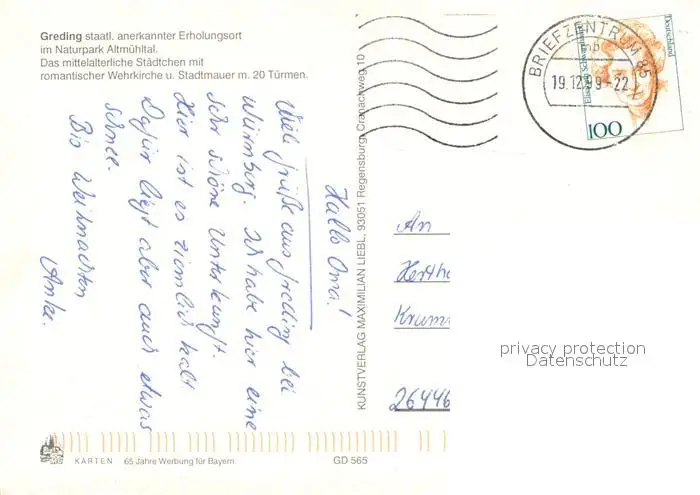 Greding staatl. anerkannter Erholungsort
im Naturpark Altmühltal.
Das mittelalterliche Städtchen mit
romantischer Wehrkirche u. Stadtmauer m. 20 Türmen.
Hallo Oma!
Viele Grüße aus Greding bei
Würnberg. Ich habe hier eine
sehr schöne Unterkunft.
Hier ist es ziemlich kalt
Dafür liegt aber auch etwas
Schnee.
Bis Weihnachten
Anke.
KUNSTVERLAG MAXIMILIAN LIEBL, 93051 Regensburg, Cranachweg 10
BRIEFZENTRUM 85
mb
19.12.99-22
Deutschland
100
An
Herth
Krum
26446
privacy protection
Datenschutz
KARTEN 65 Jahre Werbung für Bayern
GD 565